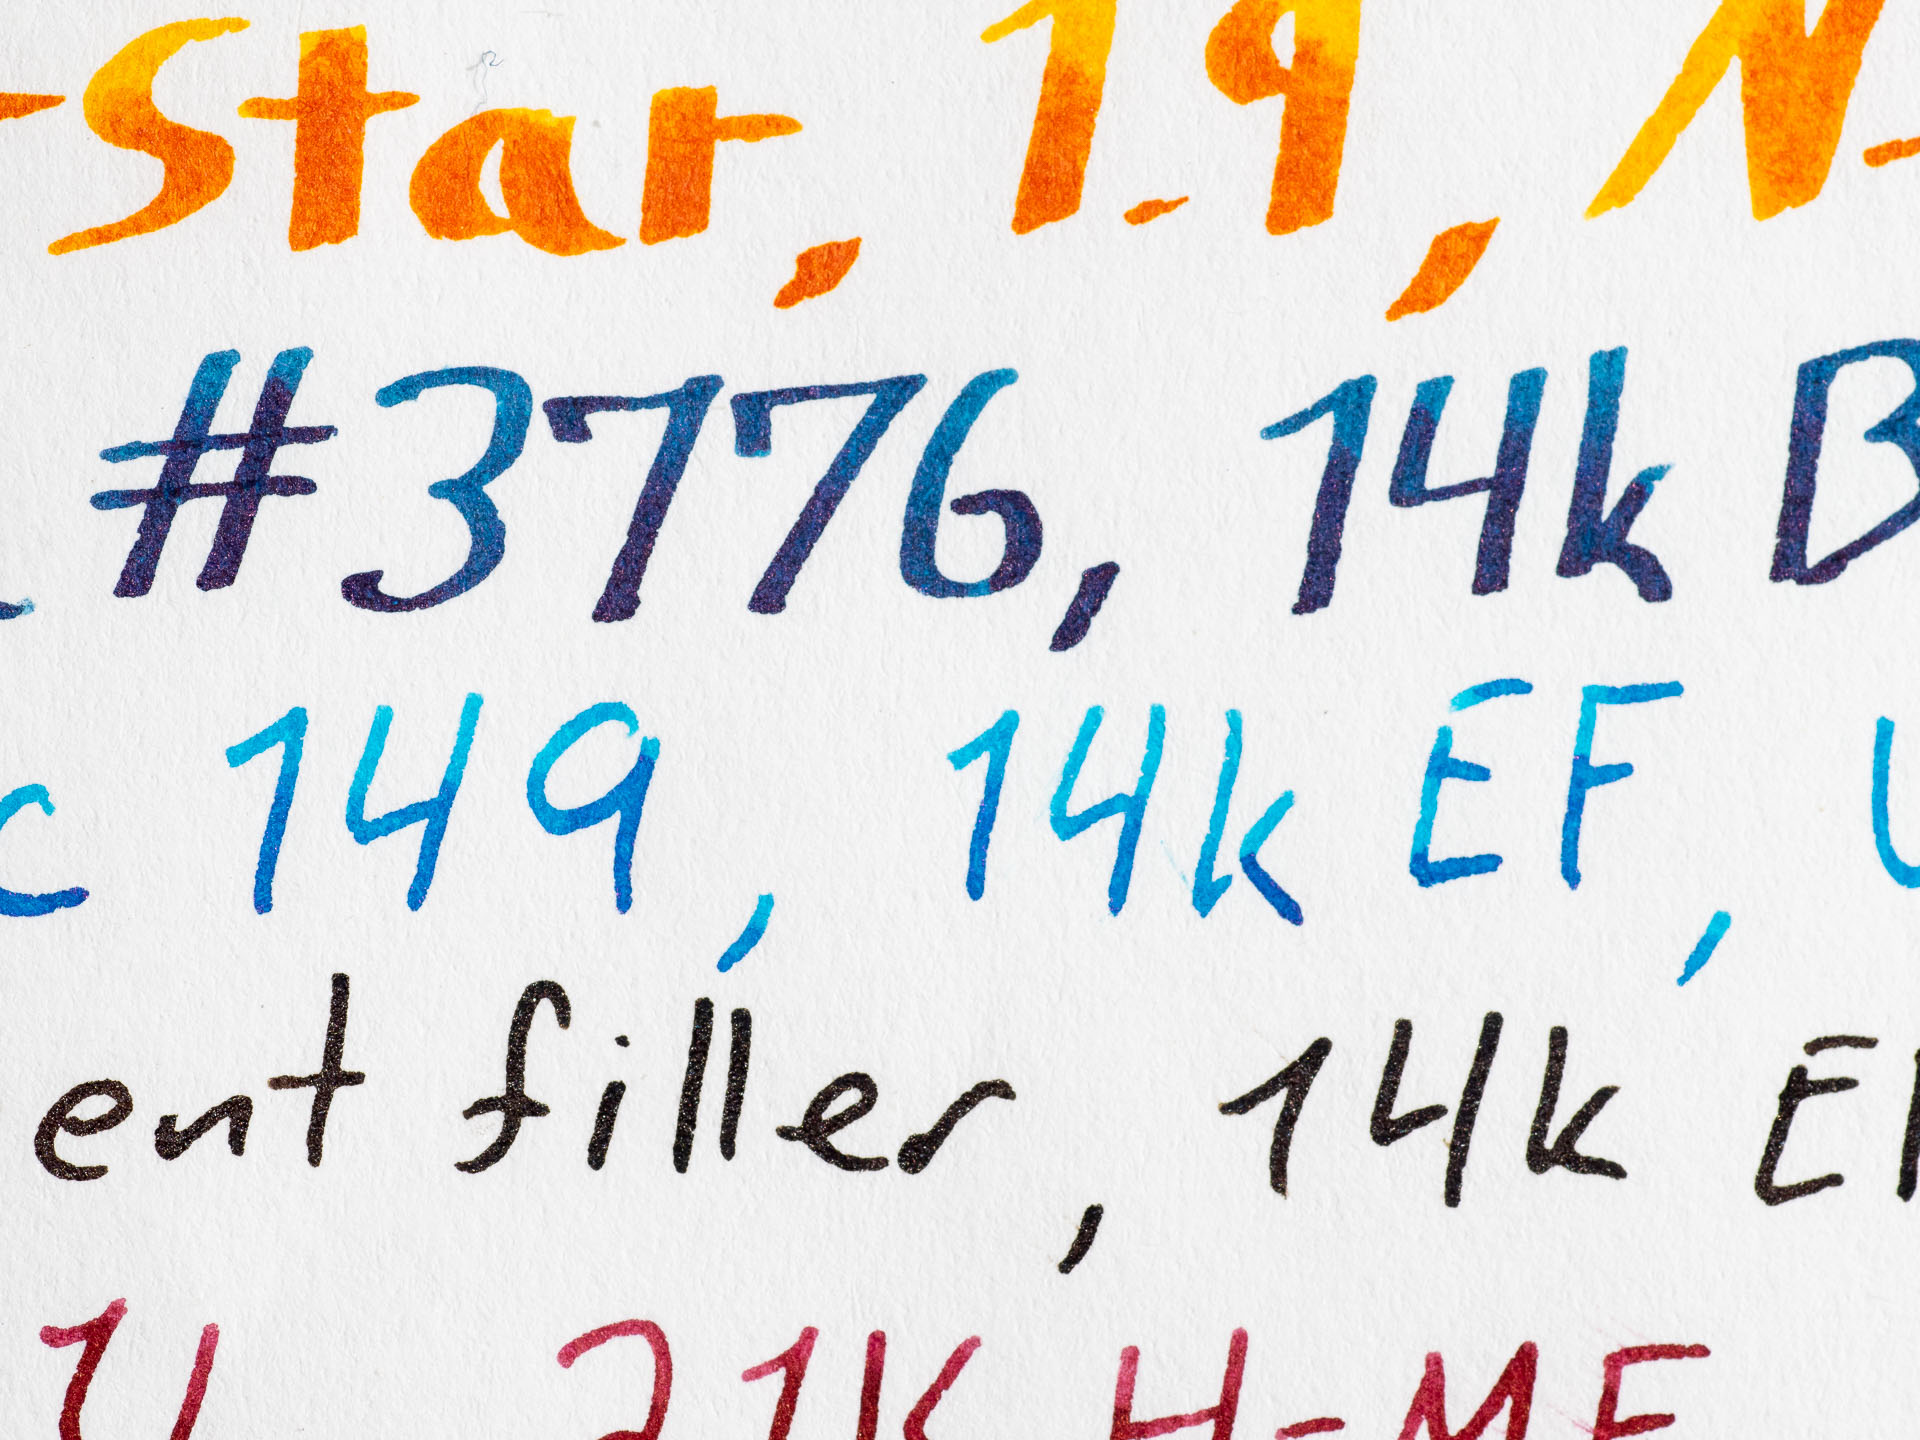 -Star, 1.9, N-
#3776, 14k B
c 149, 14k EF, U
ent filler, 14k EF
21K H-MF